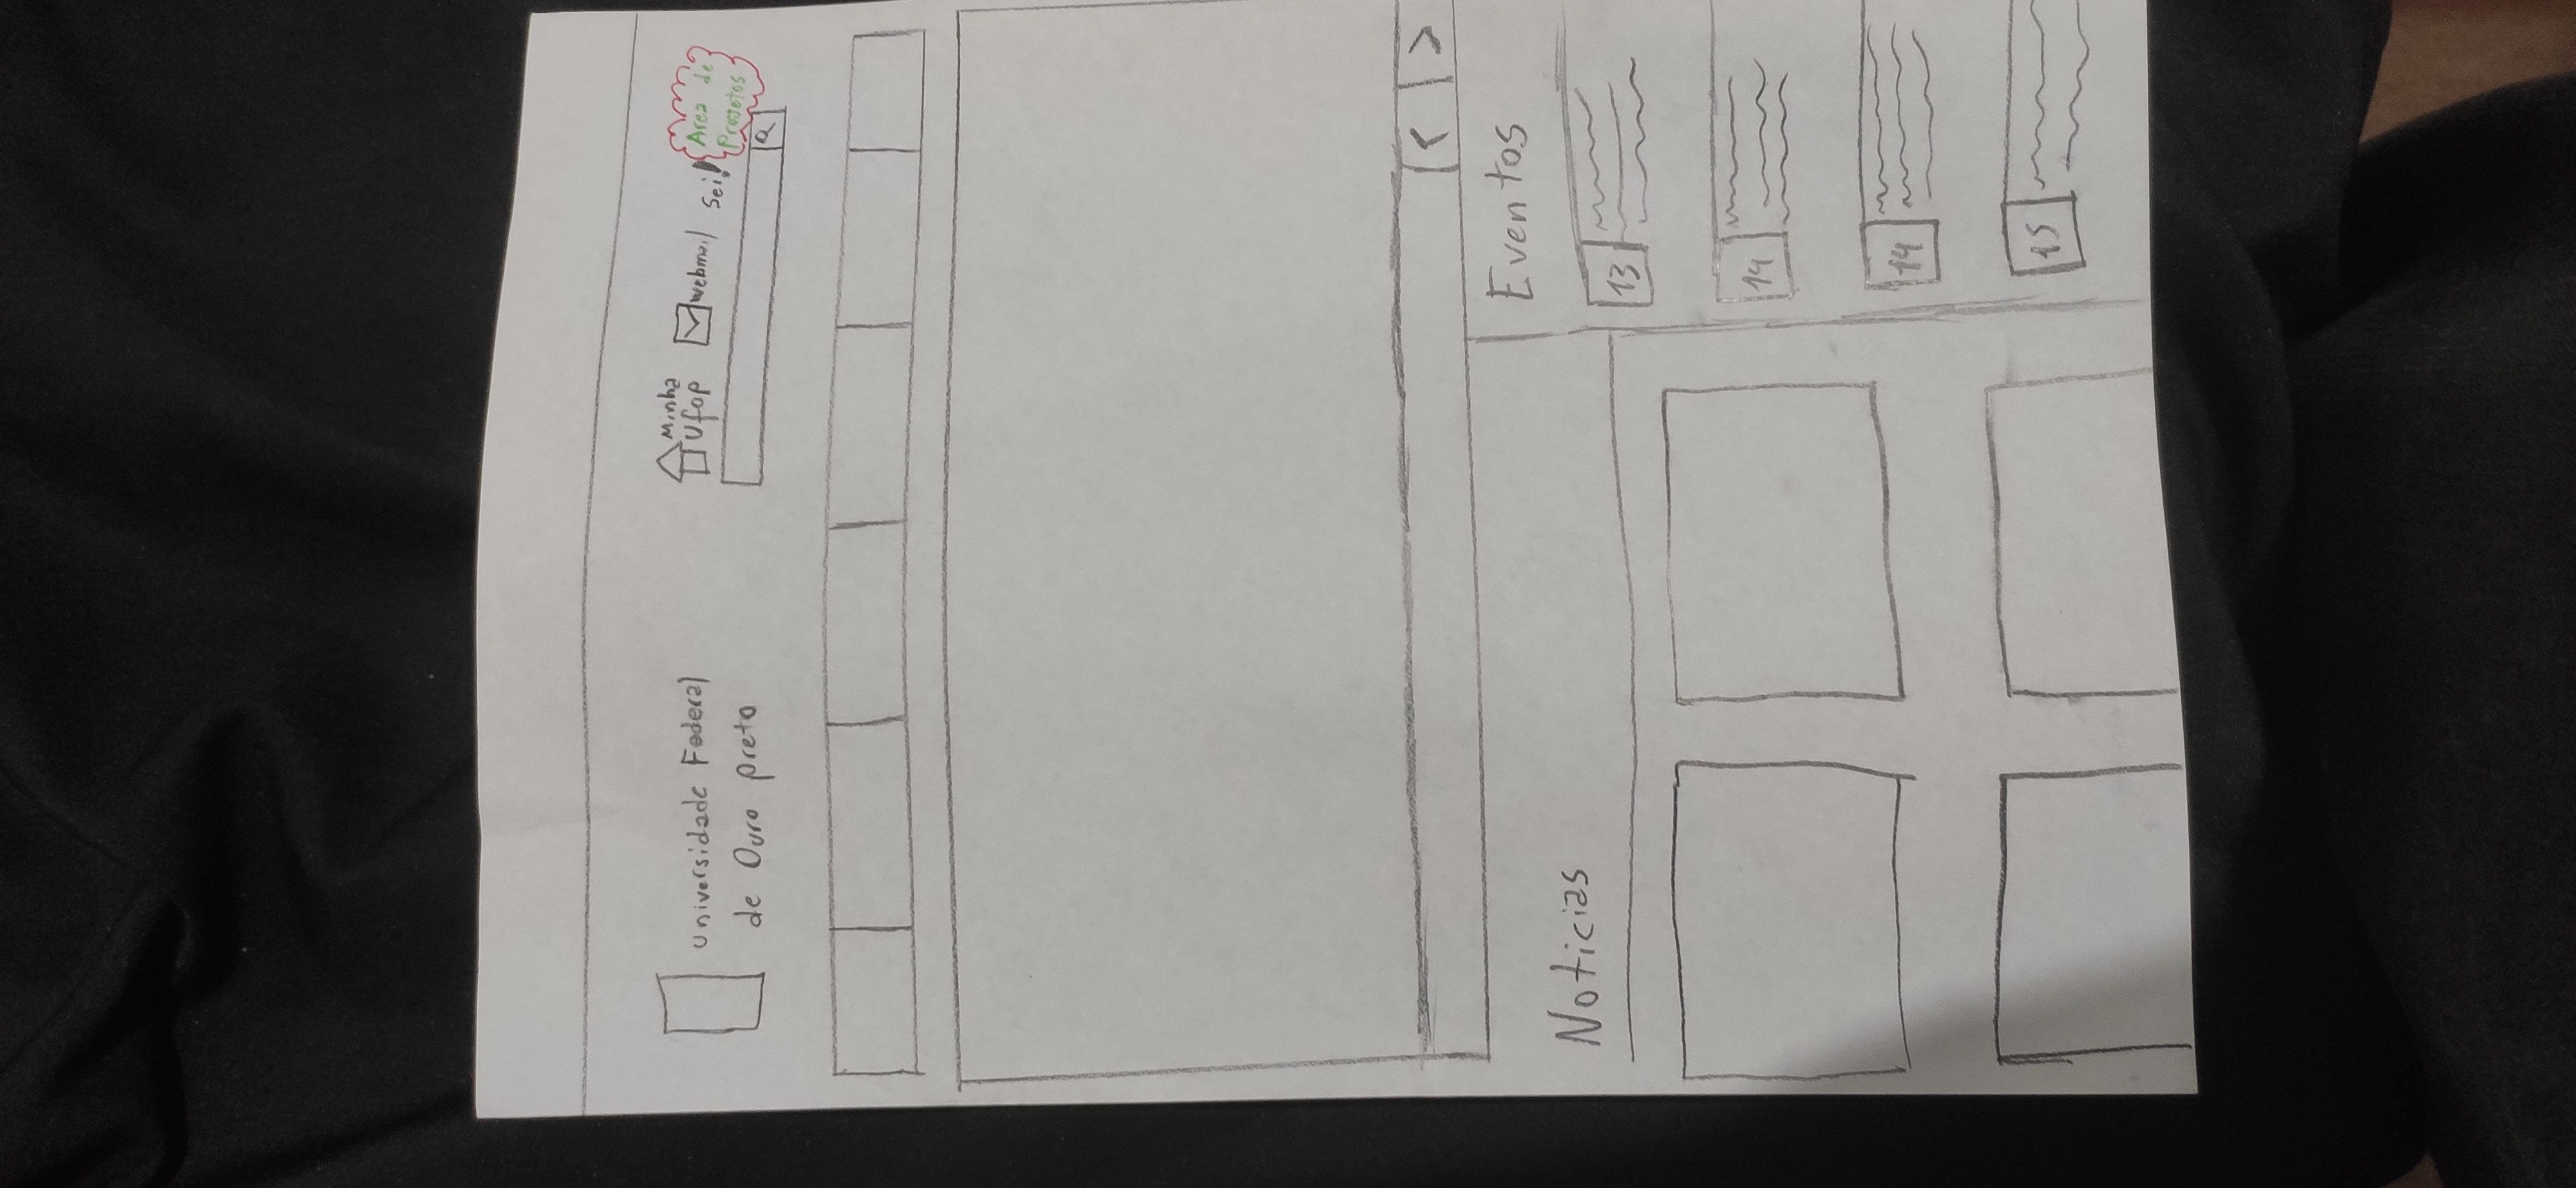 Universidade Federal
de Ouro preto
Minha
Ufop
webmail
Sei!
Area de
Projetos
< >
Noticias
Eventos
13
14
14
15